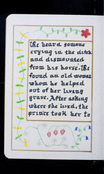 He heard someone
crying in the ditch
and dismounted
from his horse. He
found an old woman
whom he helped
out of her living
grave. After asking
where she lived, the
prince took her to